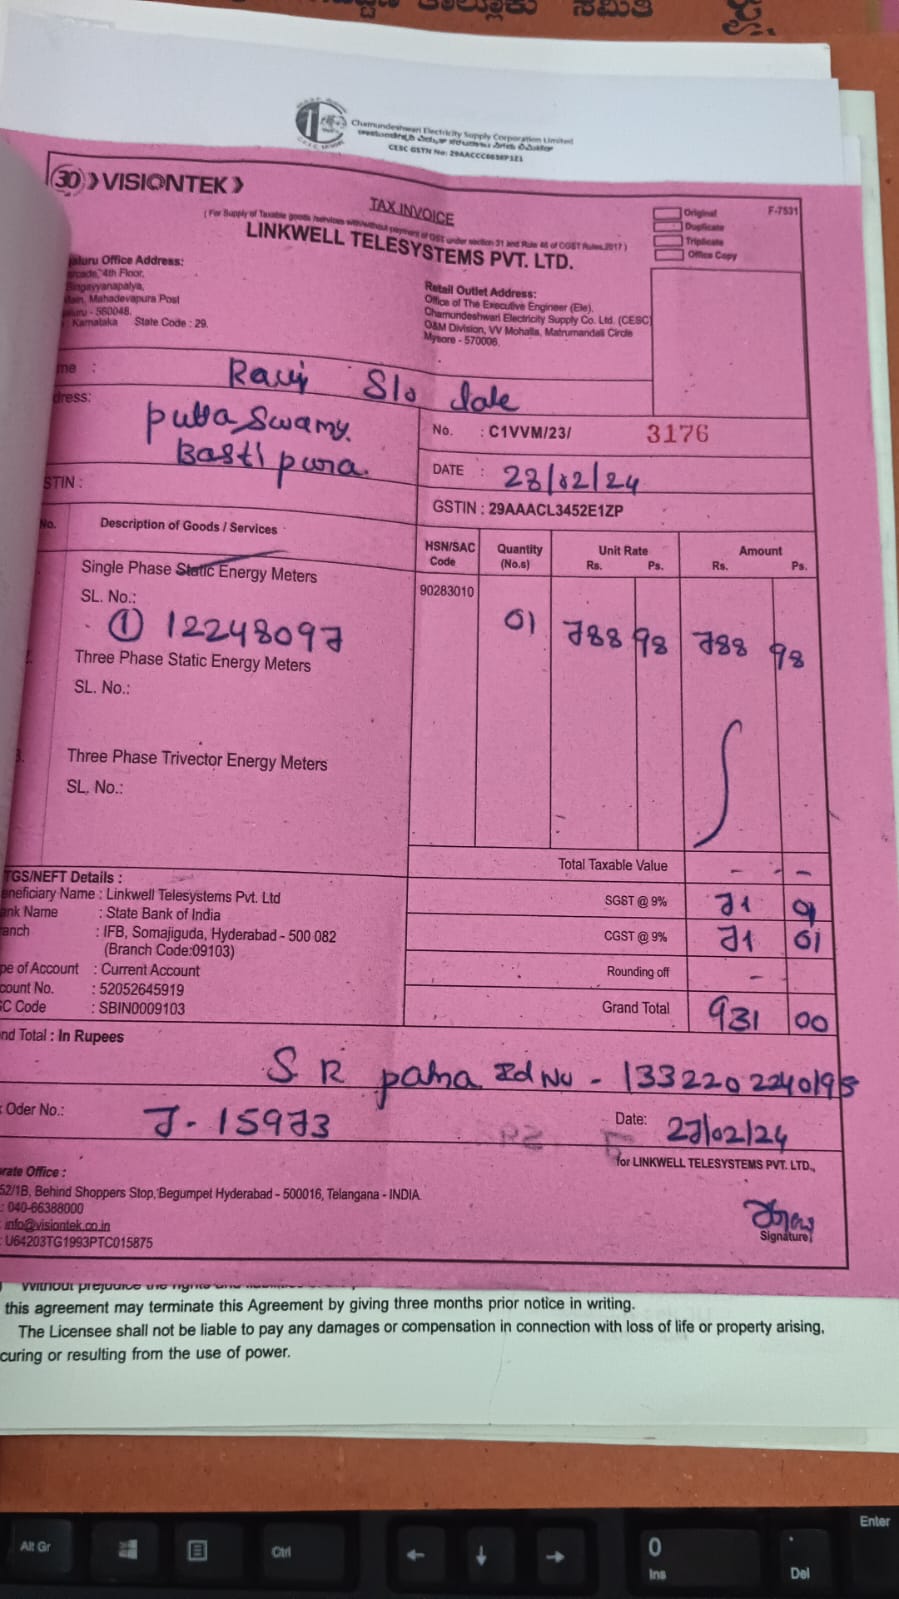 ತಾಲ್ಲೂಕು ಸಮಿತಿ
Chamundeshwari Electricity Supply Corporation Limited
CESC GSTN No:
30 VISIONTEK
TAX INVOICE
( For Supply of Taxable goods /services with/without payment of GST under section 31 and Rule 46 of CGST Rules,2017 )
LINKWELL TELESYSTEMS PVT. LTD.
Original
F-7531
Duplicate
Triplicate
Office Copy
aluru Office Address:
4th Floor,
Mahadevapura Post
560048.
Karnataka State Code : 29.
Retail Outlet Address:
Office of The Executive Engineer (Ele),
Chamundeshwari Electricity Supply Co. Ltd. (CESC)
O&M Division, VV Mohalla, Matrumandali Circle
Mysore - 570006.
me : Ravi S/o late
dress: putta swamy.
Basti pura.
STIN :
No. : C1VVM/23/ 3176
DATE : 28/02/24
GSTIN : 29AAACL3452E1ZP
No. Description of Goods / Services
HSN/SAC Code
Quantity (No.s)
Unit Rate Rs. Ps.
Amount Rs. Ps.
Single Phase Static Energy Meters
SL. No.:
① 12248097
90283010 01 788 98 788 98
Three Phase Static Energy Meters
SL. No.:
3. Three Phase Trivector Energy Meters
SL. No.:
Total Taxable Value - - -
SGST @ 9% 71 01
CGST @ 9% 71 01
Rounding off -
Grand Total 931 00
TGS/NEFT Details :
eneficiary Name : Linkwell Telesystems Pvt. Ltd
ank Name : State Bank of India
anch : IFB, Somajiguda, Hyderabad - 500 082
(Branch Code:09103)
pe of Account : Current Account
count No. : 52052645919
SC Code : SBIN0009103
nd Total : In Rupees
S R patna Id No - 13322022401
Oder No.: J-15973
Date: 27/02/24
for LINKWELL TELESYSTEMS PVT. LTD.,
Signature
rate Office :
52/1B, Behind Shoppers Stop, Begumpet Hyderabad - 500016, Telangana - INDIA.
: 040-66388000
: info@visiontek.co.in
: U64203TG1993PTC015875
Without prejudice the rights and
this agreement may terminate this Agreement by giving three months prior notice in writing.
The Licensee shall not be liable to pay any damages or compensation in connection with loss of life or property arising,
curing or resulting from the use of power.
Alt Gr
Ctrl
0
Ins
.
Del
Enter